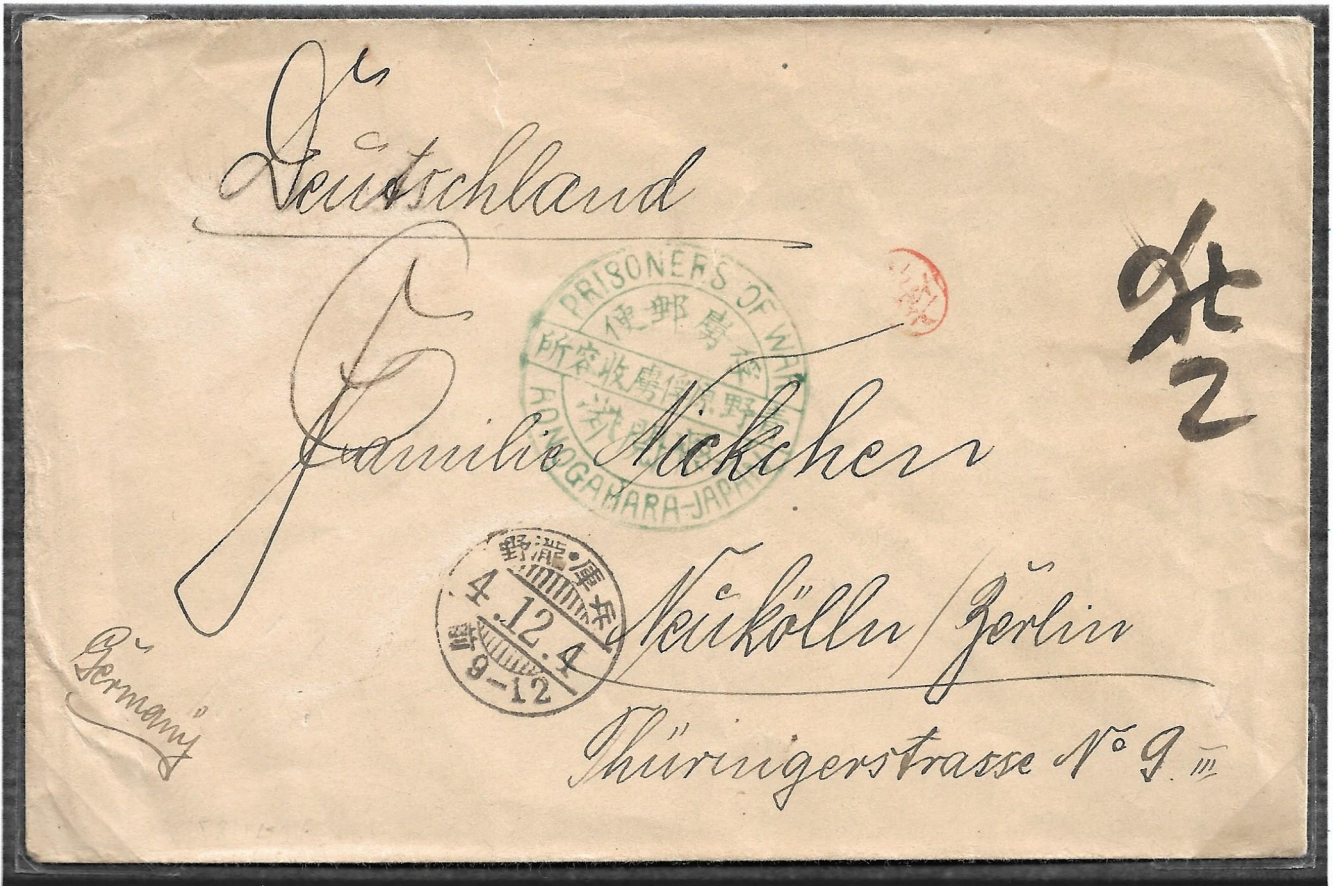 Deutschland
PRISONERS OF WAR
便郵虜俘
所容收虜俘原野青
AONOGAHARA-JAPAN
Familie Nickchen
野瀧・庫兵
4.12.4
前9-12
Neukölln/Berlin
Thüringerstrasse No 9 III
Germany
2